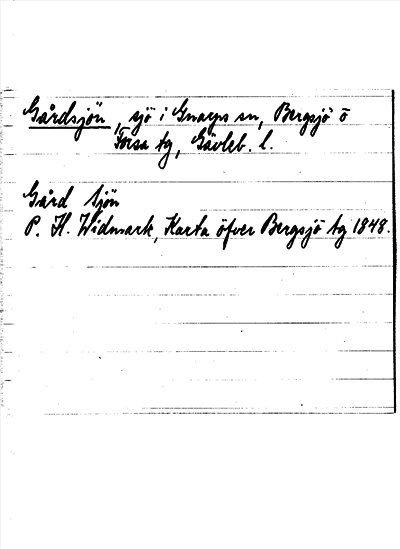 Gårdsjön, sjö i Gnarps sn, Bergsjö o
Forsa tg, Gävleb. l.
Gård Sjön
P. H. Widmark, Karta öfver Bergsjö tg 1848.